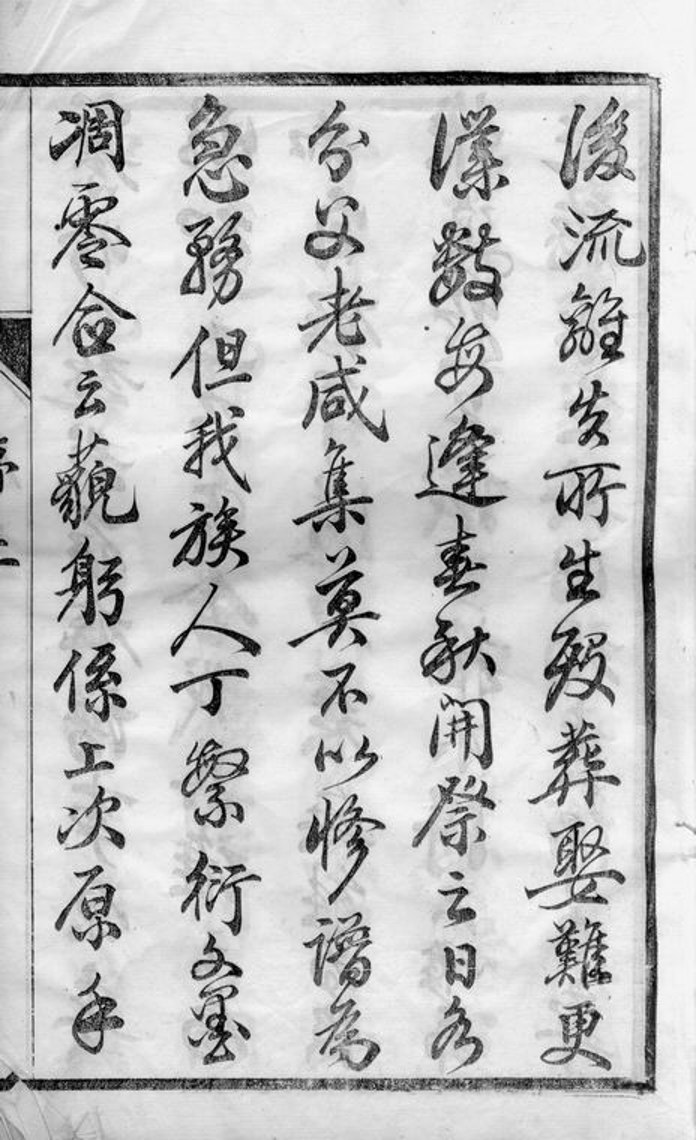 後流離失所生殁葬娶難更
僕數每逢春秋開祭之日各
分父老咸集莫不以修譜為
急務但我族人丁繁衍文墨
凋零僉云藐躬係上次原手
序